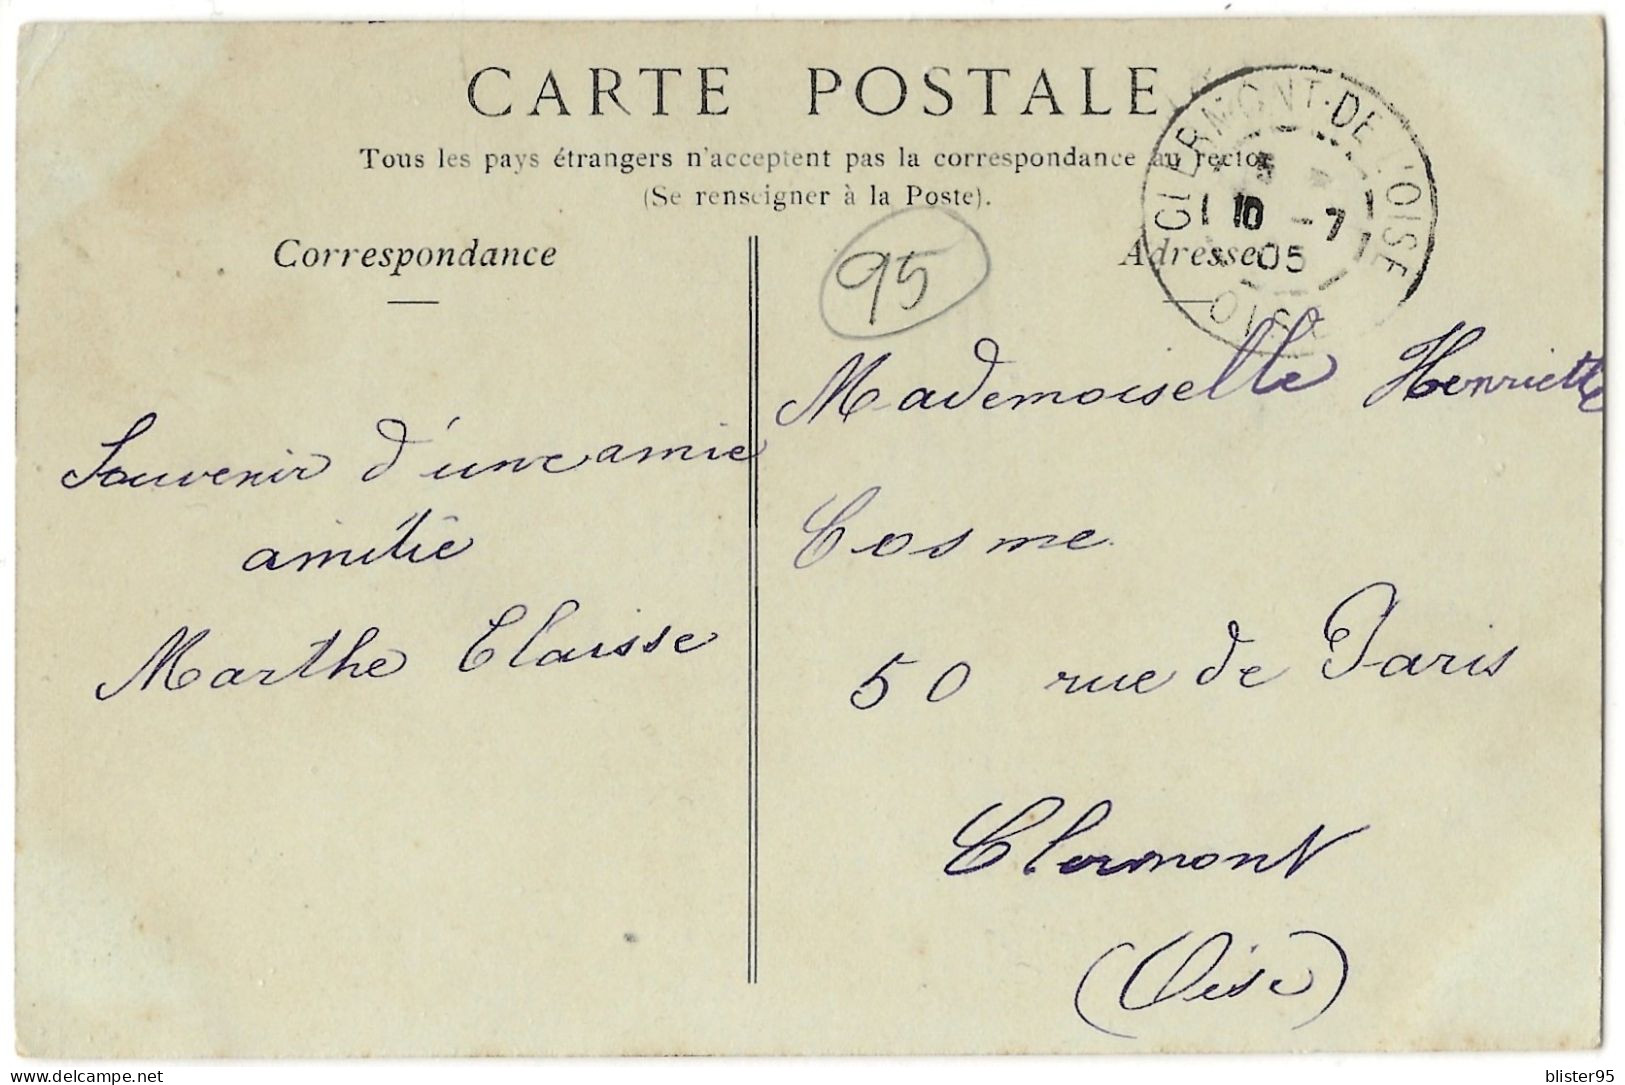 CARTE POSTALE
Tous les pays étrangers n'acceptent pas la correspondance au recto
(Se renseigner à la Poste).
CLERMONT-DE-L'OISE
10 -7
05
OISE
Correspondance
Adresse
95
Souvenir d'une amie
amitié
Marthe Claisse
Mademoiselle Henriette
Cosme
50 rue de Paris
Clermont
(Oise)
delcampe.net
blister95